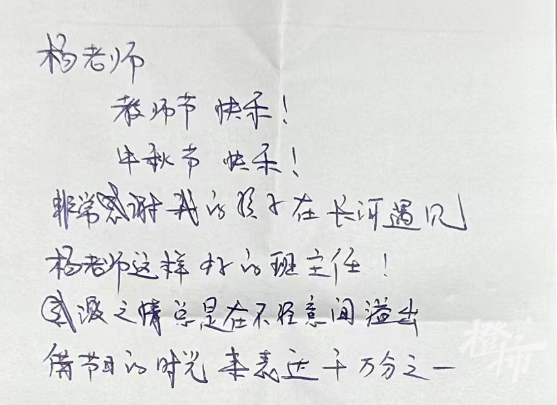 杨老师
教师节快乐!
中秋节快乐!
非常感谢我的孩子在长河遇见
杨老师这样好的班主任!
感激之情总是在不经意间溢出
借节日的时光来表达千万分之一
橙柿